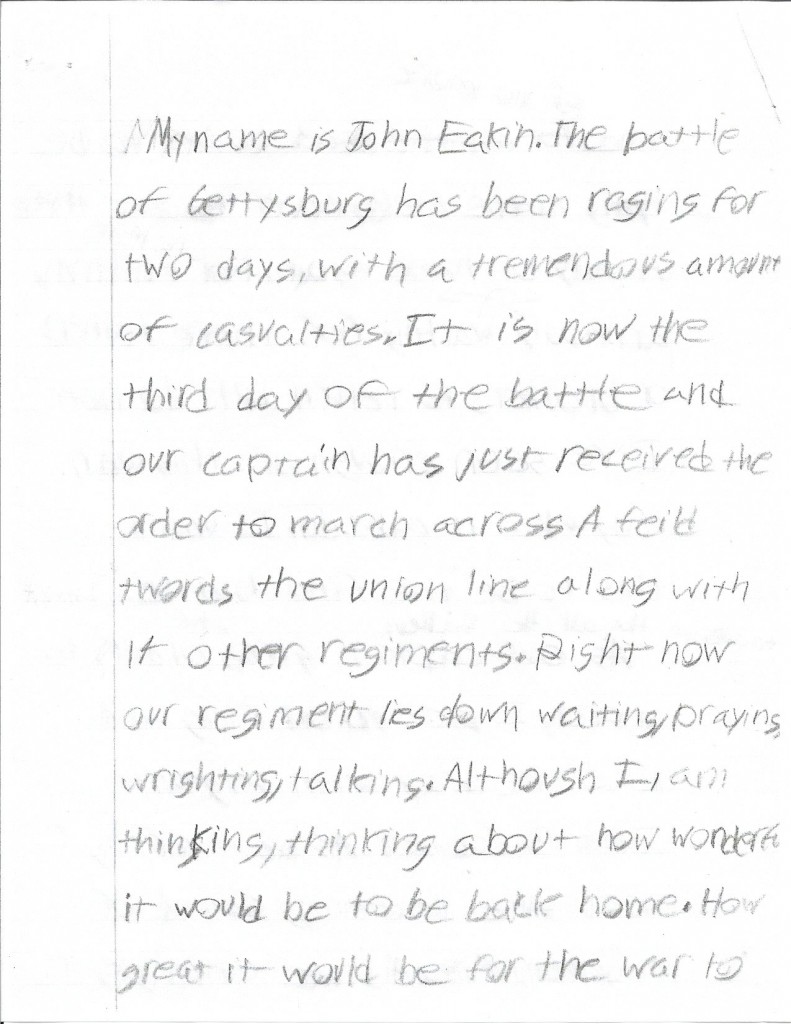 My name is John Eakin. The battle
of Gettysburg has been raging for
two days, with a tremendous amount
of casualties. It is now the
third day of the battle and
our captain has just received the
order to march across A feild
twords the union line along with
other regiments. Right now
our regiment lies down waiting, praying,
wrighting, talking. Although I, am
thinking, thinking about how
it would be to be back home. How
great it would be for the war to